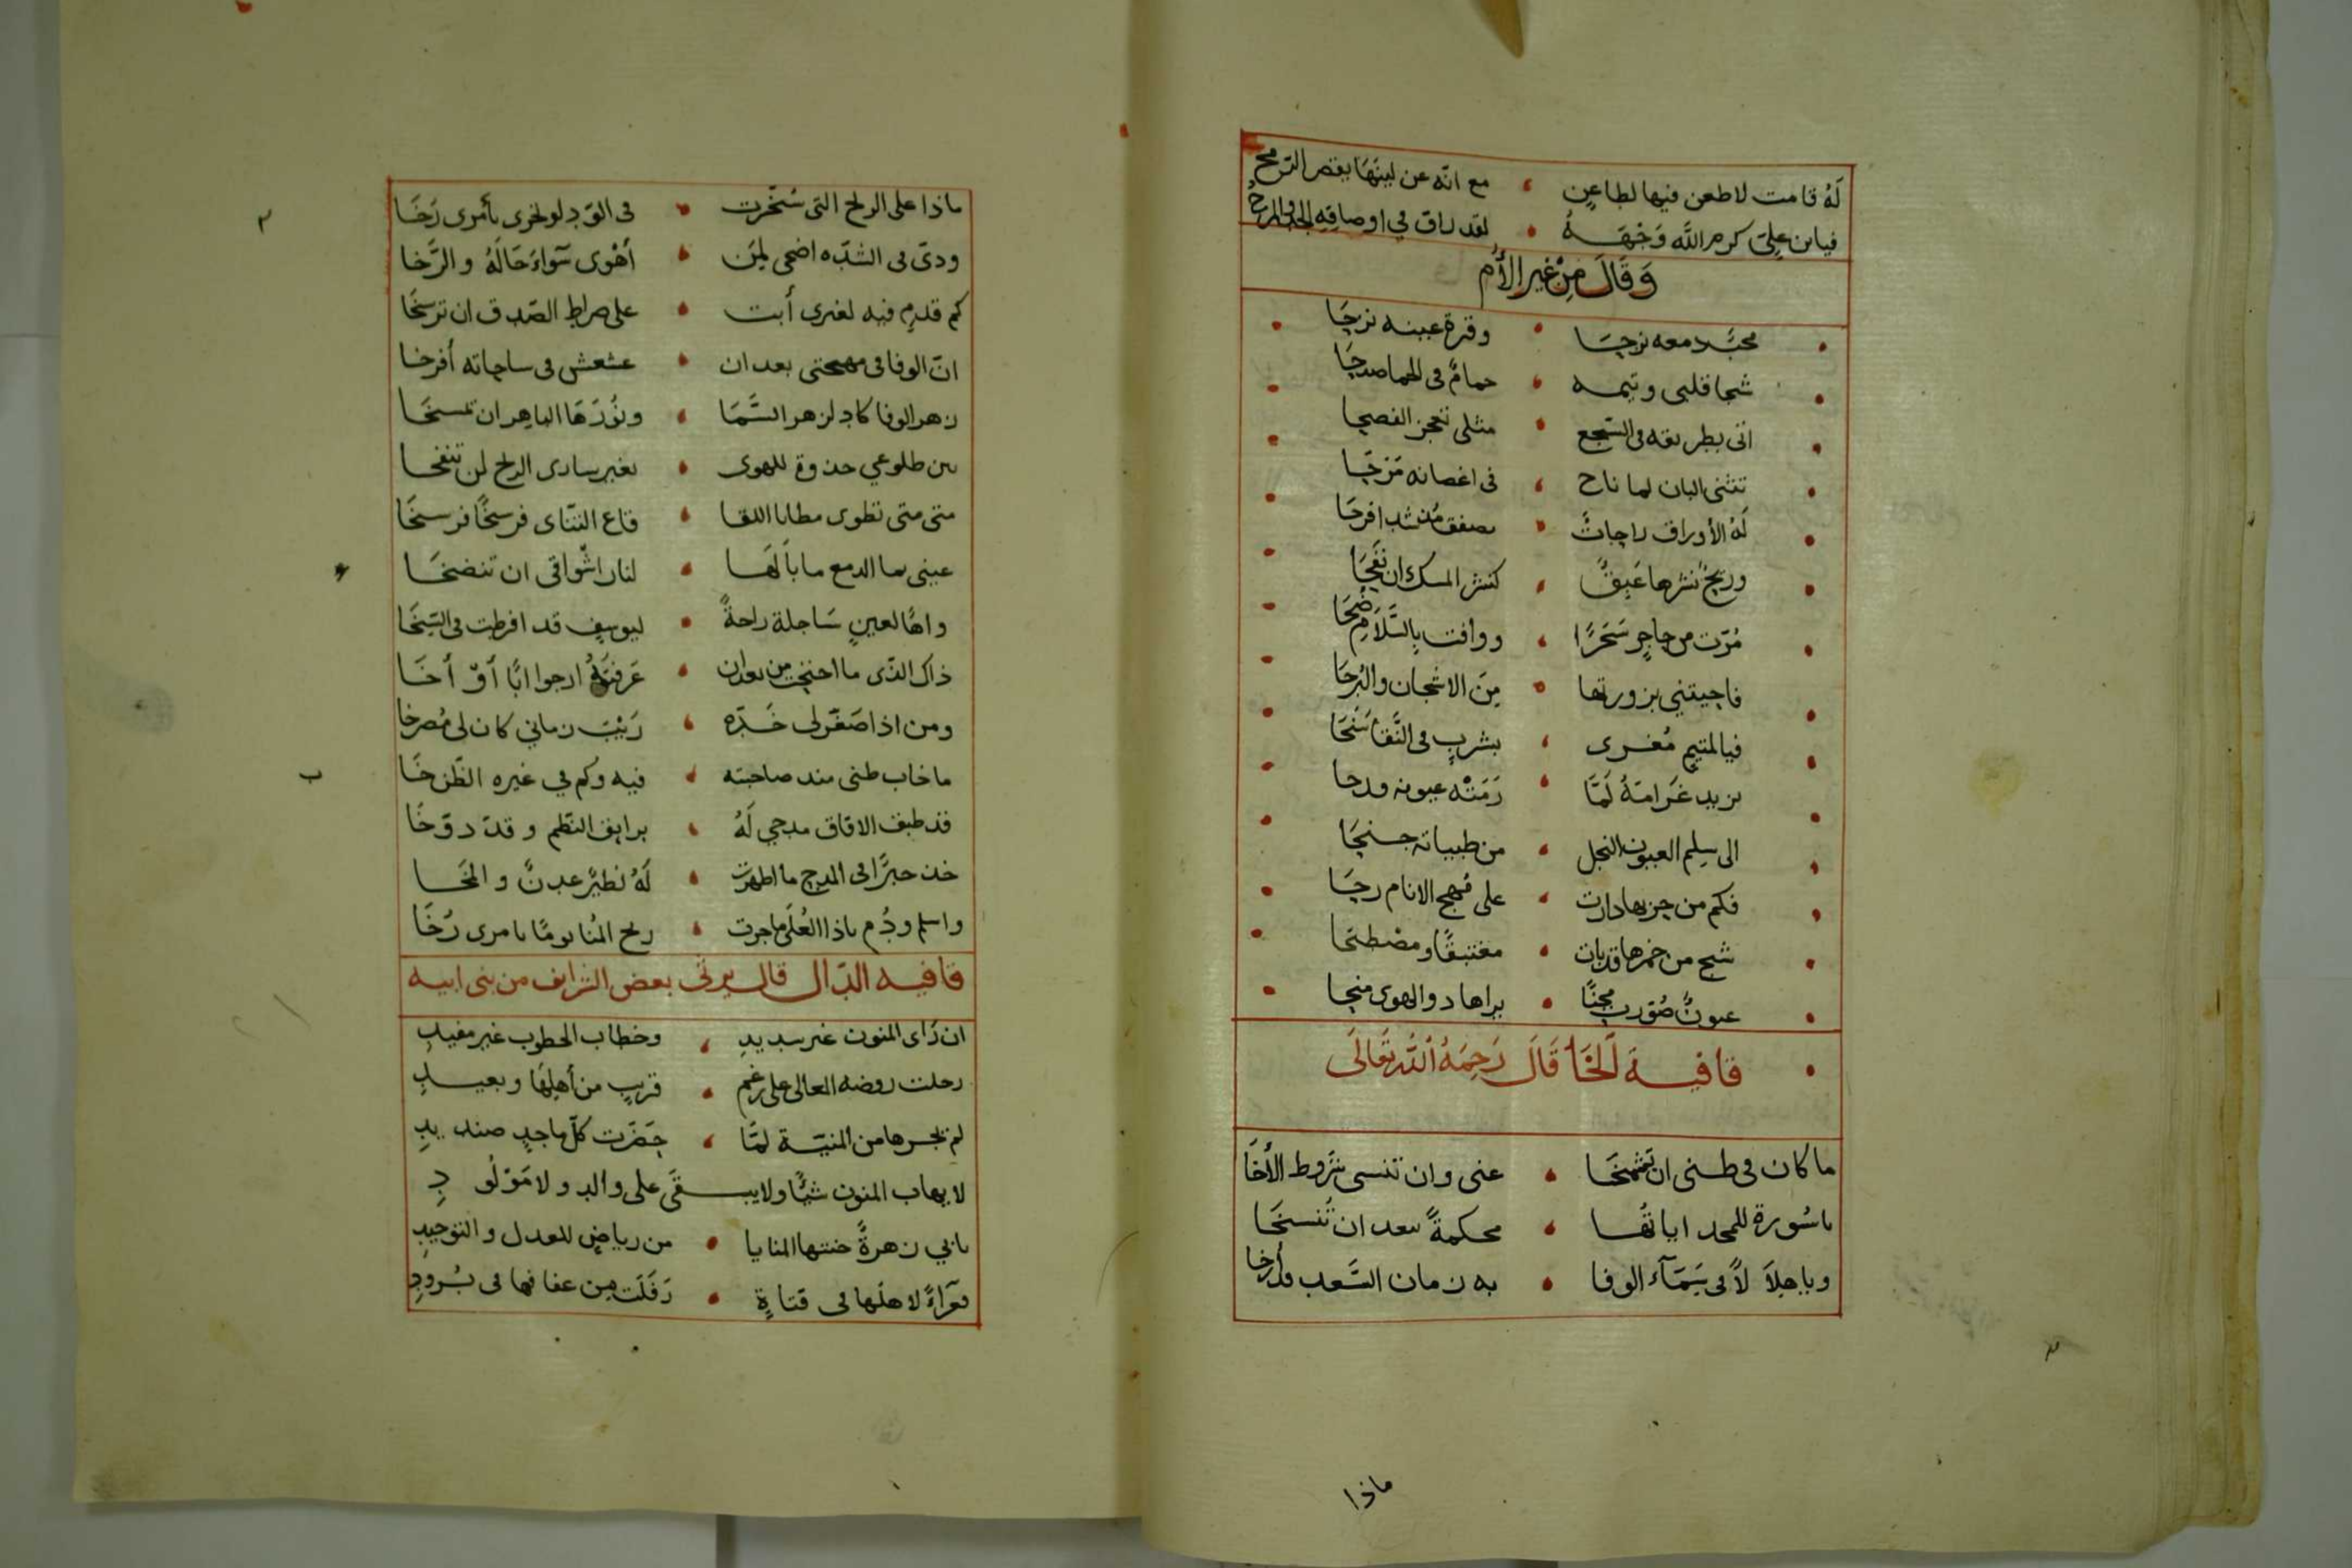 لَهُ قامت لا طعن فيها لطاعنٍ • مع انّه عن لينها يقصر الرّمح
فيابن عليّ كرم اللَّه وَجْهَهُ • لقد راق في اوصافه الجد والمزح
وَقَالَ مِنْ غير الأُم
محبّك دمعه نزحا • وقرة عينه نزحا
شجا قلبى وتيمه • حمامٌ فى الحما صدحا
اتى بطريقه فى السّجع • مثلى تعجز الفصحا
تثنى البان لما ناح • فى اغصانه مَرَحا
لَهُ الأوراق راحاتٌ • يصفق مُذ شدا فرحَا
وريحٌ نشرها عَبِقٌ • كنشر المسك ان نَفَحَا
مُرّت من حاجرٍ سَحَرًا • ووافت بالسَّلَامِ ضُحَا
فاحيتني بزورتها • مِنَ الاشجان والبُرحَا
فيا لمتيم مُغرى • بشربٍ فى النَّقَا سَنَحَا
يزيد غَرامَهُ لَمَّا • رَمَتْه عيونه
الى سلم العيون النجل • من جنحَا
فكم من حربها دارت • على مُهج الانام رحَا
شج من خمرها قد بات • مغتبقًا ومصطبحا
• يراها ذو الهوى منحا
قافية الخَا قَالَ رَحِمَهُ اللَّه تَعَالَى
ما كان فى ظنى ان تَشمخَا • عنى وان تنسى شروط الأخَا
يا سُورة للمجد اياتُها • محكمةً بعد ان تُنسخَا
ويا هلاَلاً فى سَمَآء الوفا • به زمان السَّعد قد أرخا
ماذا
ماذا على الريح التى سُخّرت • فى الوَدِ لو تجرى بأمرى رُخَا
ودىّ فى الشدّه اضحى لِمَن • أهْوى سَوَاء حَالَهُ والرَّخَا
كم قدمٍ فيه لغيرى أبت • على صراط الصّدق ان ترسخَا
انّ الوفا فى مهجتى بعد ان • عشعش فى ساحاته أفرخا
زهر الوفا كاد لزهر السَّمَا • ونُورَهَا الباهر ان تمسخَا
بين ضلوعي جذوة للهوى • بغير سارى الريح لن تنفخا
متى متى تطوى مطايا اللقا • قاع التنَّاى فرسخًا فرسخَا
عينى بما الدمع ما بالَهَا • لنار اشواقى ان تنضخَا
واهًا لعينٍ سَاجلة راحةً • ليوسفٍ قد افرطت فى السَّخَا
ذاك الذّى ما احتجت من بعد ان • عَرفتهُ ارجوا ابًا أوْ أخَا
ومن اذا صَعّر لى خَدّه • رَيْبُ زمانى كان لى مُصرخا
ما خاب ظنى منذ صاحبته • فيه وكم في غيره الظّن خَا
قد طبق الافاق مدحي لَهُ • برايق النّظم وقد دوّخَا
خذ حبرًا فى المدح ما اظهرت • لَهُ نظيرً عدنٌ والمخَا
واسلم ودُم ياذا العُلَى ما جرت • ريح المُنا يومًا بامرى رُخَا
قافيه الدّال قال يرثى بعض الشرايف من بنى ابيه
ان رَاى المنون غير سديدِ • وخطاب الخطوب غير مفيدِ
رحلت روضه المعالى على رغم • قريبٍ من أهلِهَا وبعيدِ
لم يجرها من المنيّة لمَّا • حَضَرت كلّ ماجدٍ صنديدِ
لا يهاب المنون شيًّا ولا يبقَى على والدٍ ولا مَوْلُودِ
بابي زهرةً جنتها المنايا • من رياضِ العدل والتوحيدِ
فعزآءً لاهلها فى فتاةٍ • رَفَلَت مِن عفافها فى بُرودِ